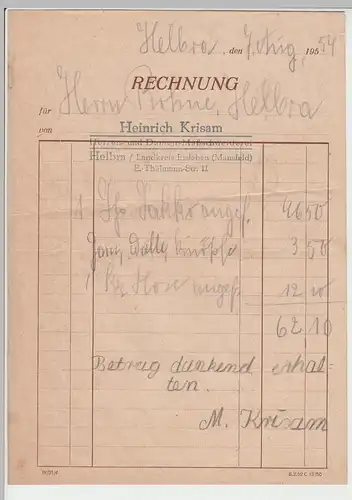 Helbra, den 7. Aug. 1954
RECHNUNG
für Herrn Bohne, Helbra
von Heinrich Krisam
Herren- und Damen-Maßschneiderei
Helbra / Landkreis Eisleben (Mansfeld)
E.-Thälmann-Str. 11
1 Sakko angef. 46 50
3 50
1 Hose angef. 12 10
62 10
Betrag dankend erhal-
ten.
M. Krisam